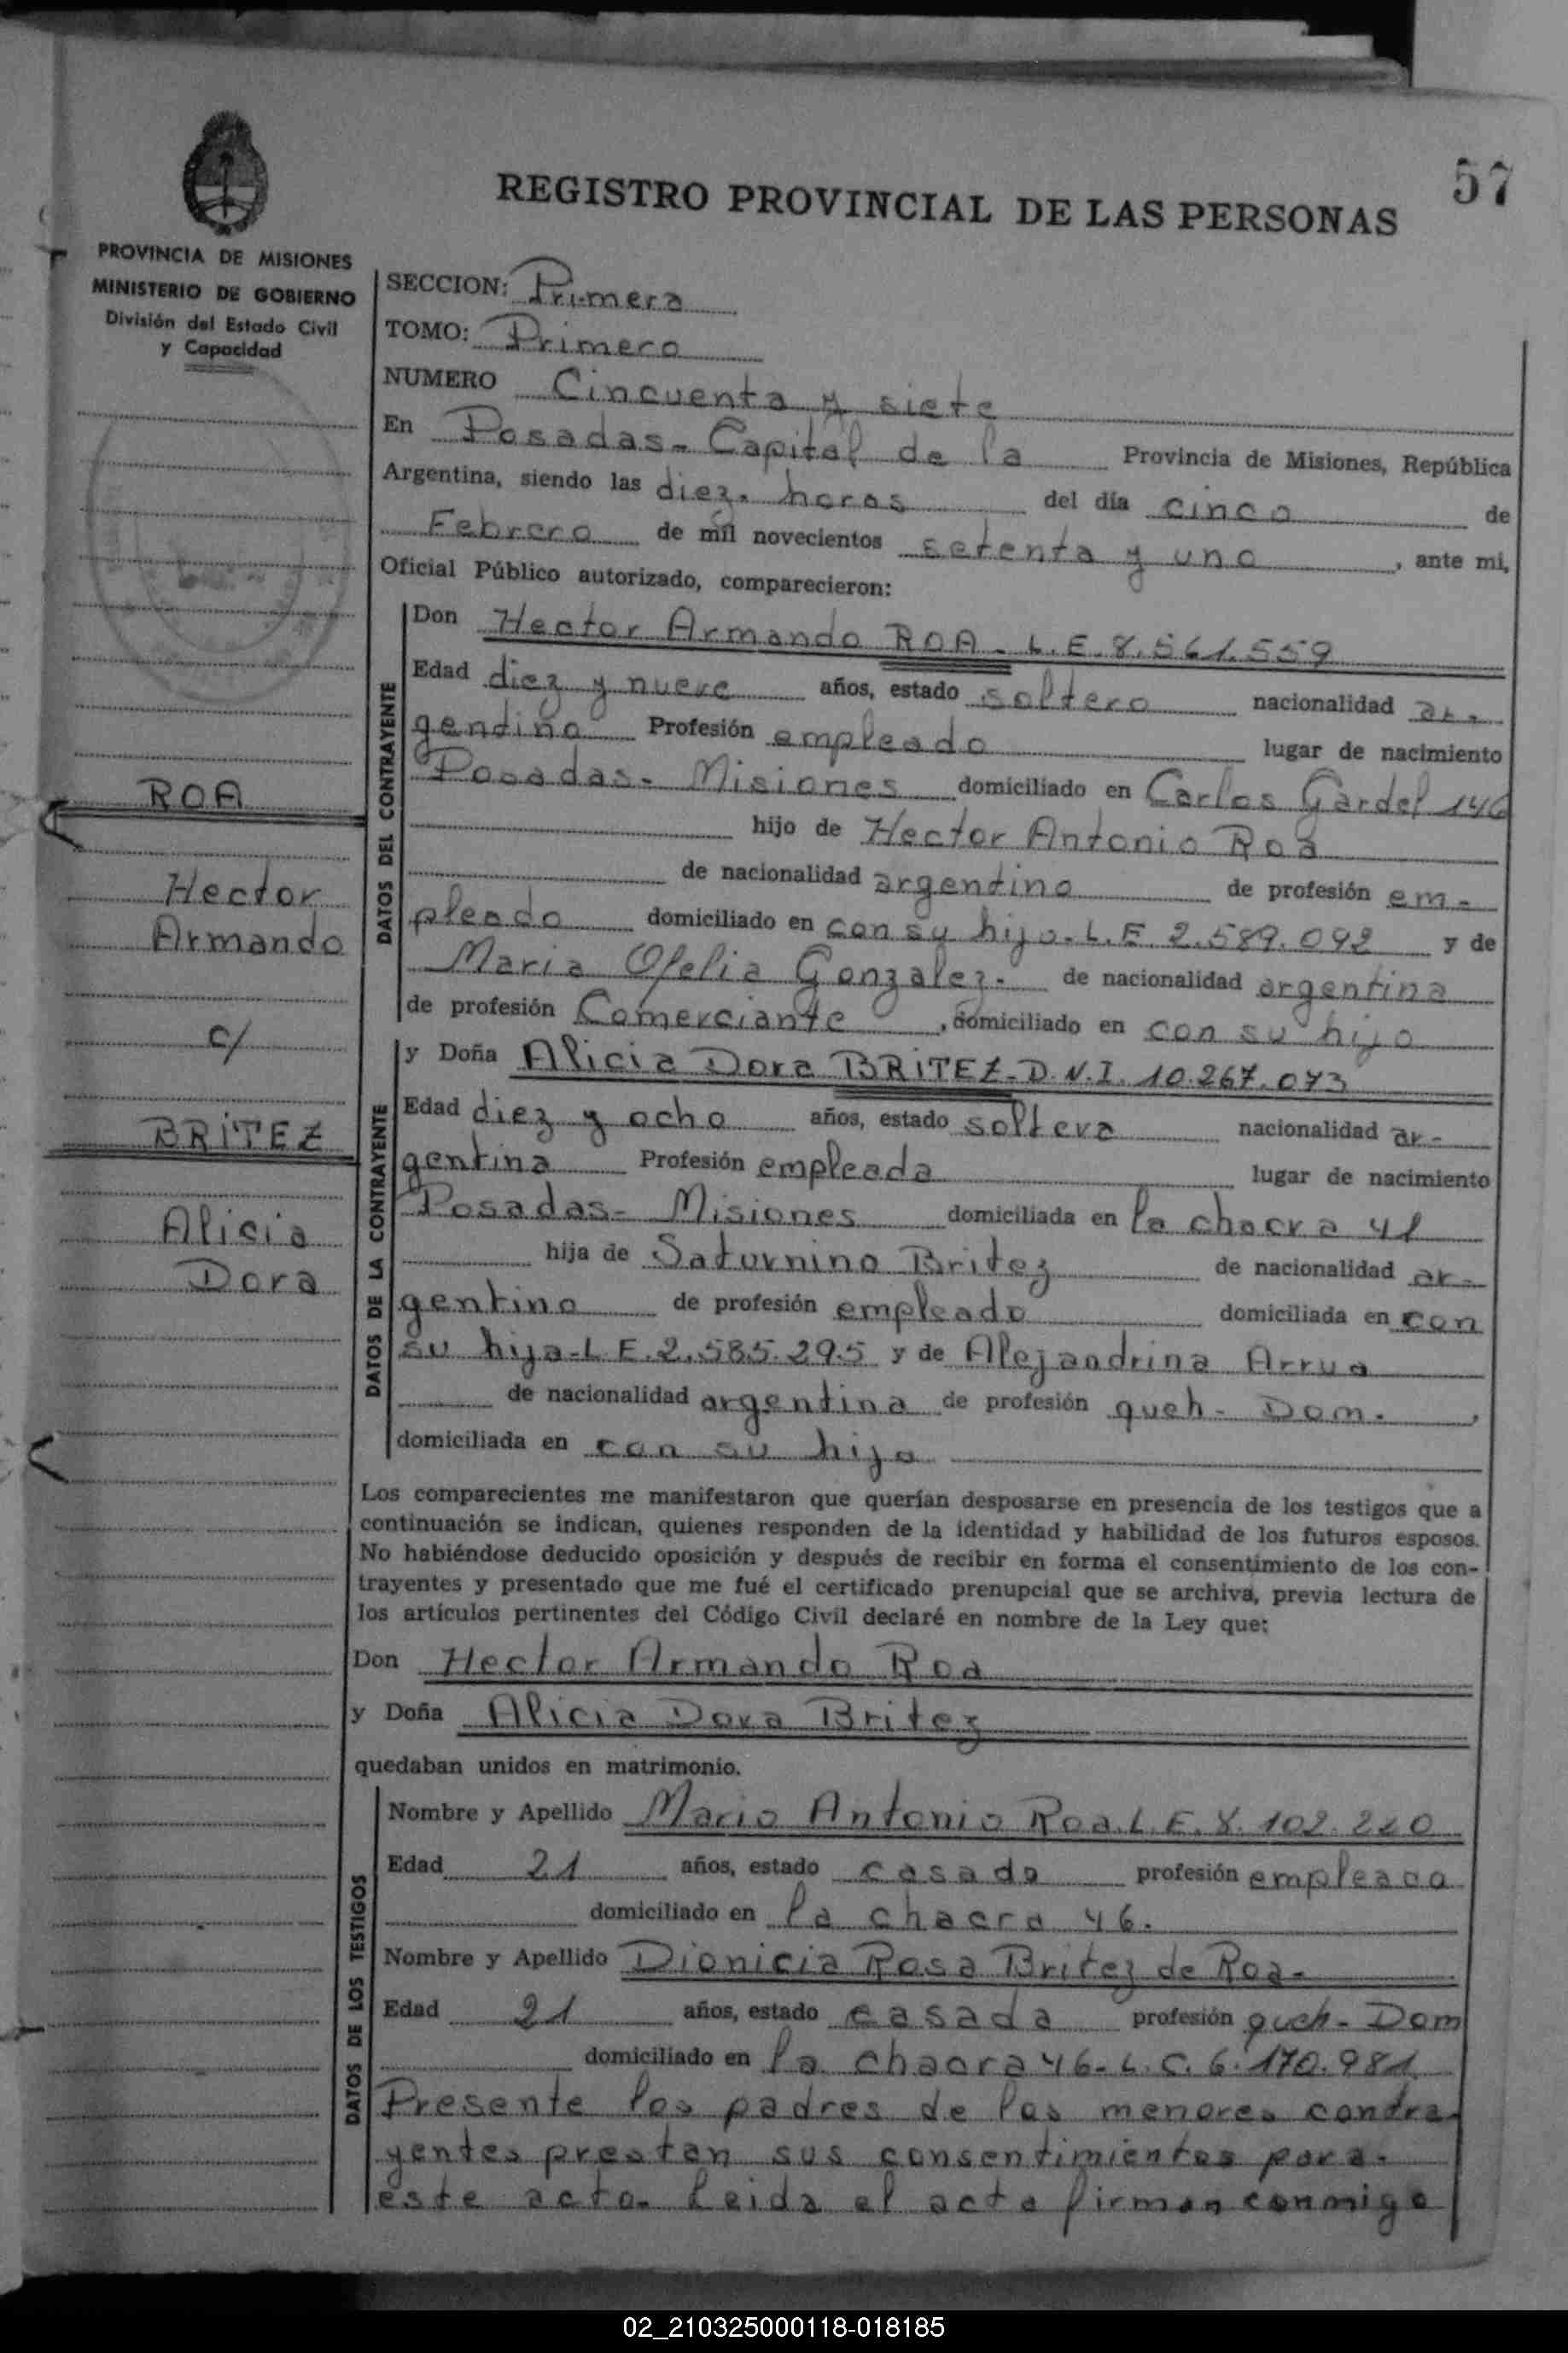 57
REGISTRO PROVINCIAL DE LAS PERSONAS
PROVINCIA DE MISIONES
MINISTERIO DE GOBIERNO
División del Estado Civil
y Capacidad
SECCION: Primera
TOMO: Primero
NUMERO Cincuenta y siete
En Posadas- Capital de la Provincia de Misiones, República
Argentina, siendo las diez. horas del día cinco de
Febrero de mil novecientos setenta y uno, ante mi,
Oficial Público autorizado, comparecieron:
DATOS DEL CONTRAYENTE
Don Hector Armando ROA - L.E.8.561.559
Edad diez y nueve años, estado soltero nacionalidad ar-
gentino Profesión empleado lugar de nacimiento
Posadas- Misiones domiciliado en Carlos Gardel 146
hijo de Hector Antonio Roa
de nacionalidad argentino de profesión em-
pleado domiciliado en con su hijo-L.E 2.589.092 y de
Maria Ofelia Gonzalez. de nacionalidad argentina
de profesión Comerciante, domiciliado en con su hijo
ROA
Hector
Armando
c/
BRITEZ
Alicia
Dora
DATOS DE LA CONTRAYENTE
y Doña Alicia Dora BRITEZ-D.N.I. 10.267.073
Edad diez y ocho años, estado soltera nacionalidad ar-
gentina Profesión empleada lugar de nacimiento
Posadas- Misiones domiciliada en la chacra 41
hija de Saturnino Britez de nacionalidad ar-
gentino de profesión empleado domiciliada en con
su hija-L.E.2.585.295 y de Alejandrina Arrua
de nacionalidad argentina de profesión queh- Dom.,
domiciliada en con su hija
Los comparecientes me manifestaron que querían desposarse en presencia de los testigos que a
continuación se indican, quienes responden de la identidad y habilidad de los futuros esposos.
No habiéndose deducido oposición y después de recibir en forma el consentimiento de los con-
trayentes y presentado que me fué el certificado prenupcial que se archiva, previa lectura de
los artículos pertinentes del Código Civil declaré en nombre de la Ley que:
Don Hector Armando Roa
y Doña Alicia Dora Britez
quedaban unidos en matrimonio.
DATOS DE LOS TESTIGOS
Nombre y Apellido Mario Antonio Roa.L.E.8.102.220
Edad 21 años, estado casado profesión empleado
domiciliado en la chacra 46.
Nombre y Apellido Dionicia Rosa Britez de Roa-
Edad 21 años, estado casada profesión queh- Dom
domiciliado en la chacra 46-L.C.6.170.981
Presente los padres de los menores contra-
yentes prestan sus consentimientos para-
este acto. Leida el acta firman conmigo
02_210325000118-018185